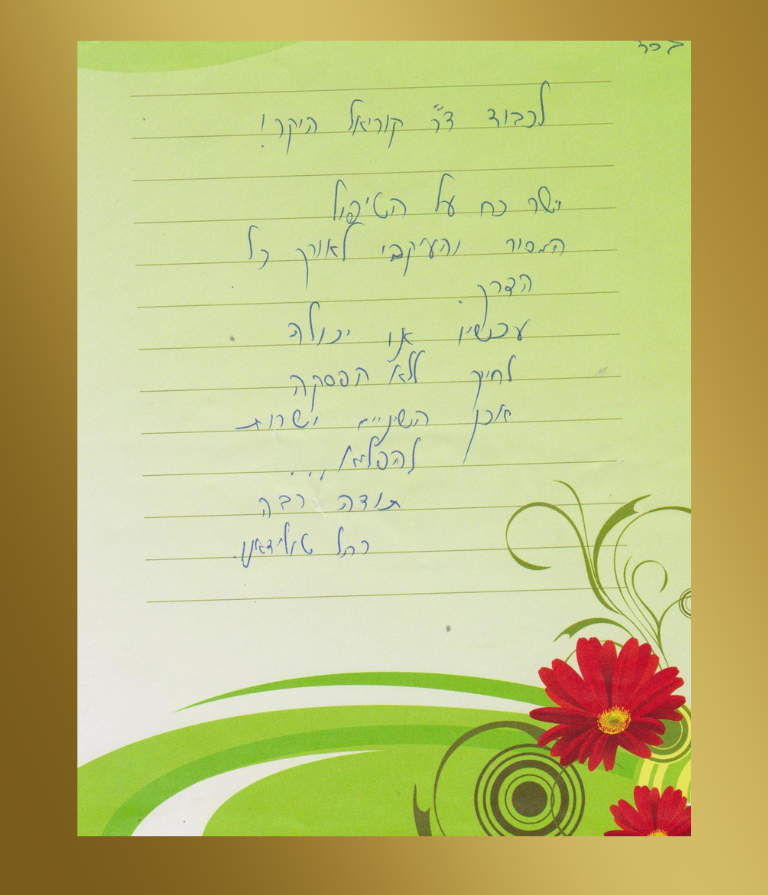 בס"ד
לכבוד ד"ר קוריאל היקר!
ישר כח על הטיפול
המסור והעיקבי לאורך כל
הדרך.
עכשיו אני יכולה
לחייך ללא הפסקה
אכן השיניים ישרות
להפליא!...
תודה רבה
רחל